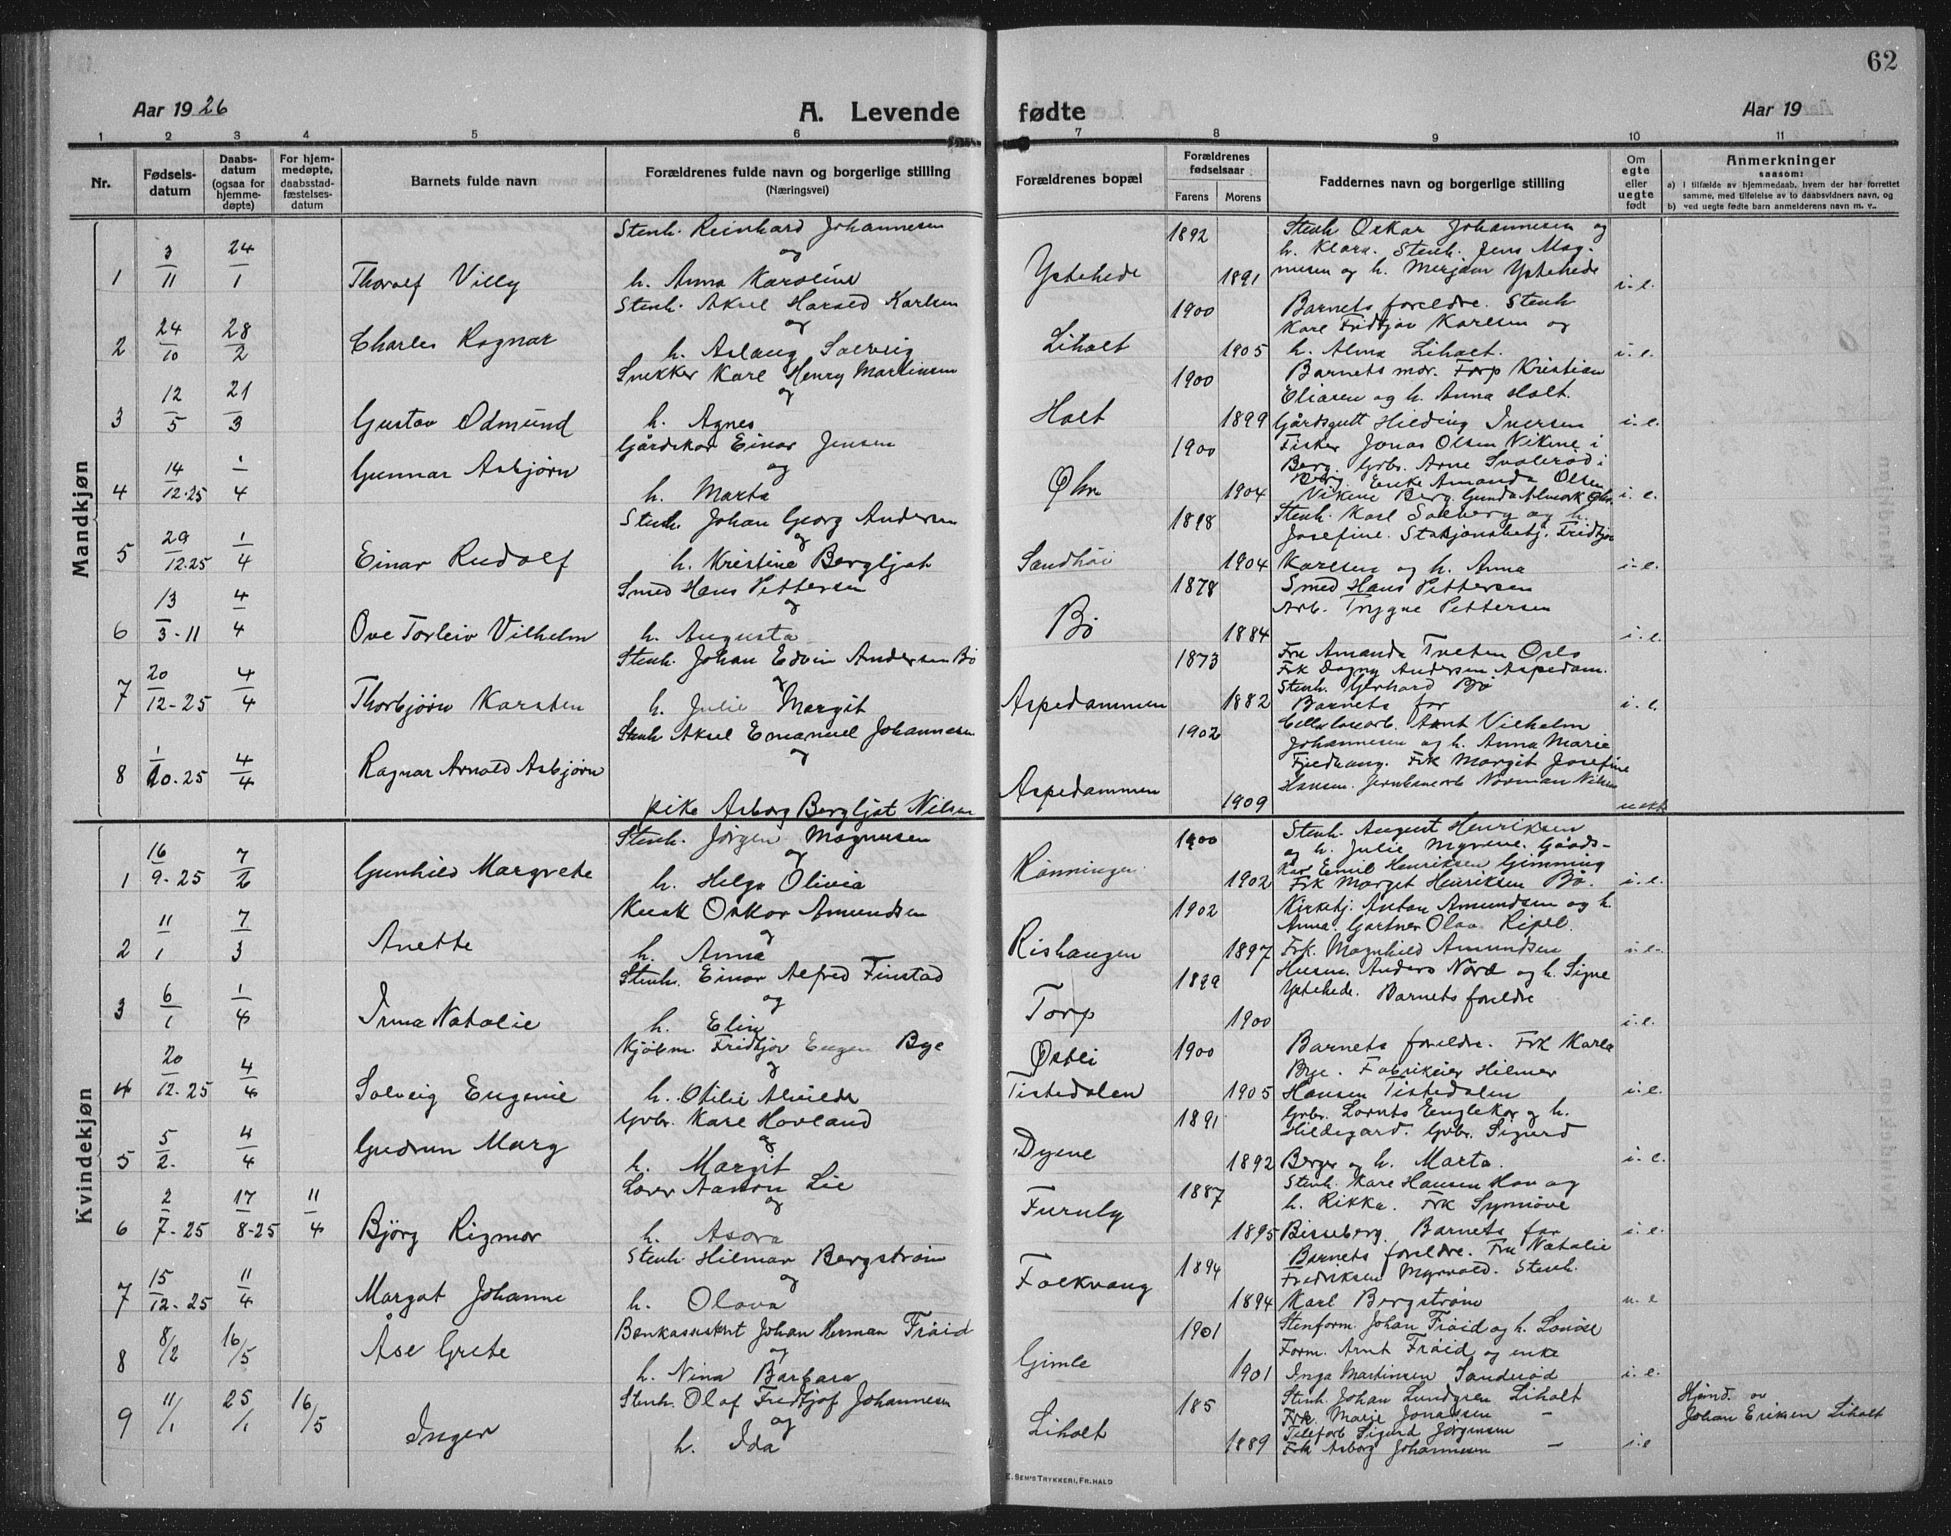 62
Aar 1926 A. Levende fødte Aar 19
1 2 3 4 5 6 7 8 9 10 11
Nr.
Fødsels-
datum
Daabs-
datum
(ogsaa for
hjemme-
døpte)
For hjem-
medøpte,
daabsstad-
fæstelses-
datum
Barnets fulde navn
Forældrenes fulde navn og borgerlige stilling
(Næringsvei)
Forældrenes bopæl
Forældrenes
fødselsaar
Farens Morens
Faddernes navn og borgerlige stilling
Om
egte
eller
uegte
født
Anmerkninger
saasom:
a) i tilfælde av hjemmedaab, hvem der har forrettet
samme, med tilføielse av to daabsvidners navn, og
b) ved uegte fødte barn anmelderens navn m. v..
Mandkjøn
1 3/11 24/1 Thoralf Villy
Stenh. Reinhard Johannesen
og
h. Anna Karoline
Ystehede 1892 1891
Stenh Oskar Johannesen og
h. Klara. Stenh. Jens Mag-
nusen og h. Merjam Ystehede
i. e.
2 24/10 28/2 Charles Ragnar
Stenh. Aksel Harald Karlsen
og
h. Aslaug Solveig
Liholt 1900 1905
Barnets foreldre. Stenh
Karl Fridtjov Karlsen og
h. Alma Liholt.
i. e.
3 12/5 21/3 Gustav Odmund
Snekker Karl Henry Martinsen
og
h. Agnes
Holt 1900 1899
Barnets mor. Forp Kristian
Eliasen og h. Anna Holt.
Gårdsgutt Hilding Iversen
i. e.
4 14/12-25 1/4 Gunnar Asbjørn
Gårdskar Einar Jensen
og
h. Marta
1900 1904
Fisker Jonas Olsen Vikene i
Berg. Grbr. Arne Svalerød i
Berg. Enke Amanda Olsen
Vikene Berg. Gunda
i. e.
5 29/12-25 1/4 Einar Rudolf
Stenh. Johan Georg Andersen
og
h. Kristine Bergljot
Sandhöi 1898 1904
Stenh. Karl Solberg og h.
Josefine. Fridtjov
Karlsen og h. Anna
i. e.
6 13/3-11 4/4 Ove Torleiv Vilhelm
Smed Hans Pettersen
og
h. Augusta
Bö 1878 1884
Smed Hans Pettersen
Arb. Trygve Pettersen
i. e.
7 20/12-25 4/4 Thorbjørn Karsten
Stenh. Johan Edvin Andersen Bö
og
h. Julie Margit
Aspedammen 1873 1882
Fru Amanda Tveten Oslo
Frk Dagny Andersen Aspedam.
Stenh. Gerhard Bö
Barnets far
i. e.
8 1/10-25 4/4 Ragnar Arnold Asbjørn
Stenh Aksel Emanuel Johannesen
og
pike Asborg Bergljot Nilsen
Aspedammen 1902 1909
Cellulosearb. Arnt Vilhelm
Johannesen og h. Anna Marie
Fjedhaug. Frk Margit Josefine
Hansen. Jernbanearb Norman Nilsen
uekte
Kvindekjøn
1 16/9-25 7/2 Gunhild Margrete
Stenh. Jørgen Magnusen
og
h. Helga Olivia
Rönningen 1900 1902
Stenh. August Henriksen
og h. Julie Myrene. Gårds-
kar Emil Henriksen Gimming
Frk Margit Henriksen Bö.
i. e.
2 11/1 7/3 Anette
Kusk Oskar Amundsen
og
h. Anna
Rishaugen 1902 1897
Kirketj. Anton Amundsen og h.
Anna. Gartner Olav Ripel.
Frk. Magnhild Amundsen
i. e.
3 6/1 1/4 Irma Natalie
Stenh. Einar Alfred Finstad
og
h. Elin
Torp 1899 1900
Husm. Anders Nord og h. Signe
Ystehede. Barnets foreldre
i. e.
4 20/12-25 4/4 Solveig Eugenie
Kjöbm. Fridtjov Eugen Bye
og
h. Otilie Alvilde
Östli
Tistedalen 1900 1905
Barnets foreldre. Frk Karla
Bye. Fabrikeier Hilmer
Hansen Tistedalen
i. e.
5 5/2. 4/4 Gudrun Marg
Grbr. Karl Hovland
og
h. Margit
Dyene 1891 1892
Grbr. Lornts Englekor og h.
Hildegard. Grbr. Sigurd
Berger og h. Marta.
i. e.
6 2/7-25 17/8-25 11/4 Björg Rigmor
Lærer Aanon Lie
og
h. Asora
Furuly 1887 1895
Stenh. Karl Hansen Hov og
h. Rikka. Frk Synnöve
Bisseberg. Barnets far
i. e.
7 15/12-25 11/4 Margot Johanne
Stenh Hilmar Bergström
og
h. Olava
Folkvang 1894 1894
Barnets foreldre. Fru Natalie
Fredriksen Myrvold. Stenh.
Karl Bergström
u. e
8 8/2 16/5 Åse Grete
Bankassistent Johan Herman Fröid
og
h. Nina Barbara
Gimle 1901 1901
Stenform. Johan Fröid og h. Lovise
Form. Arnt Fröid og enke
Inga Martinsen Sanderöd
i. e.
9 11/1 25/1 16/5 Inger
Stenh. Olaf Fredtjof Johannesen
og
h. Ida
Liholt 185 1889
Stenh. Johan Lundgren Liholt
Frk. Marie Jonassen –
Telefarb Sigurd Jörgensen
Frk Asborg Johannesen –
i. e
Hjmd. av
Johan Eriksen Liholt
E. SEM'S TRYKKERI, FR.HALD